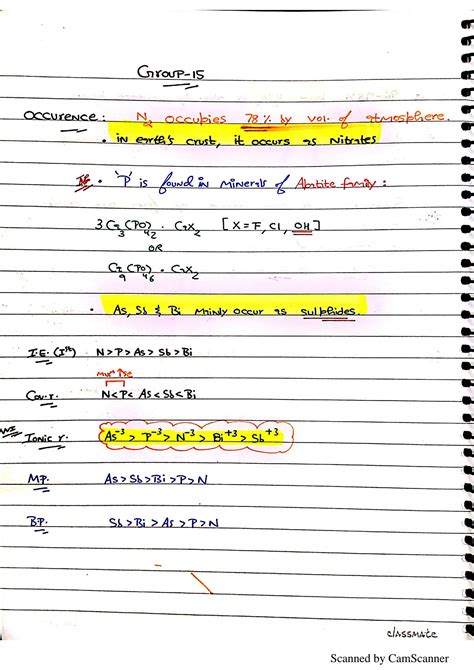 GROUP-15
OCCURENCE : N2 occupies 78% by vol. of atmosphere.
• in earth's crust, it occurs as Nitrates
• 'P' is found in minerals of Apatite family :
3Ca3(PO4)2 . CaX2 [X=F, Cl, OH]
OR
Ca9(PO4)6 . CaX2
• As, Sb & Bi mainly occur as sulphides.
I.E. (Ist) N>P>As>Sb>Bi
max ↑se
Cov.r. N<P<As<Sb<Bi
Ionic r. As-3 > P-3 > N-3 > Bi+3 > Sb+3
MP. As>Sb>Bi>P>N
BP. Sb>Bi>As>P>N
classmate
Scanned by CamScanner